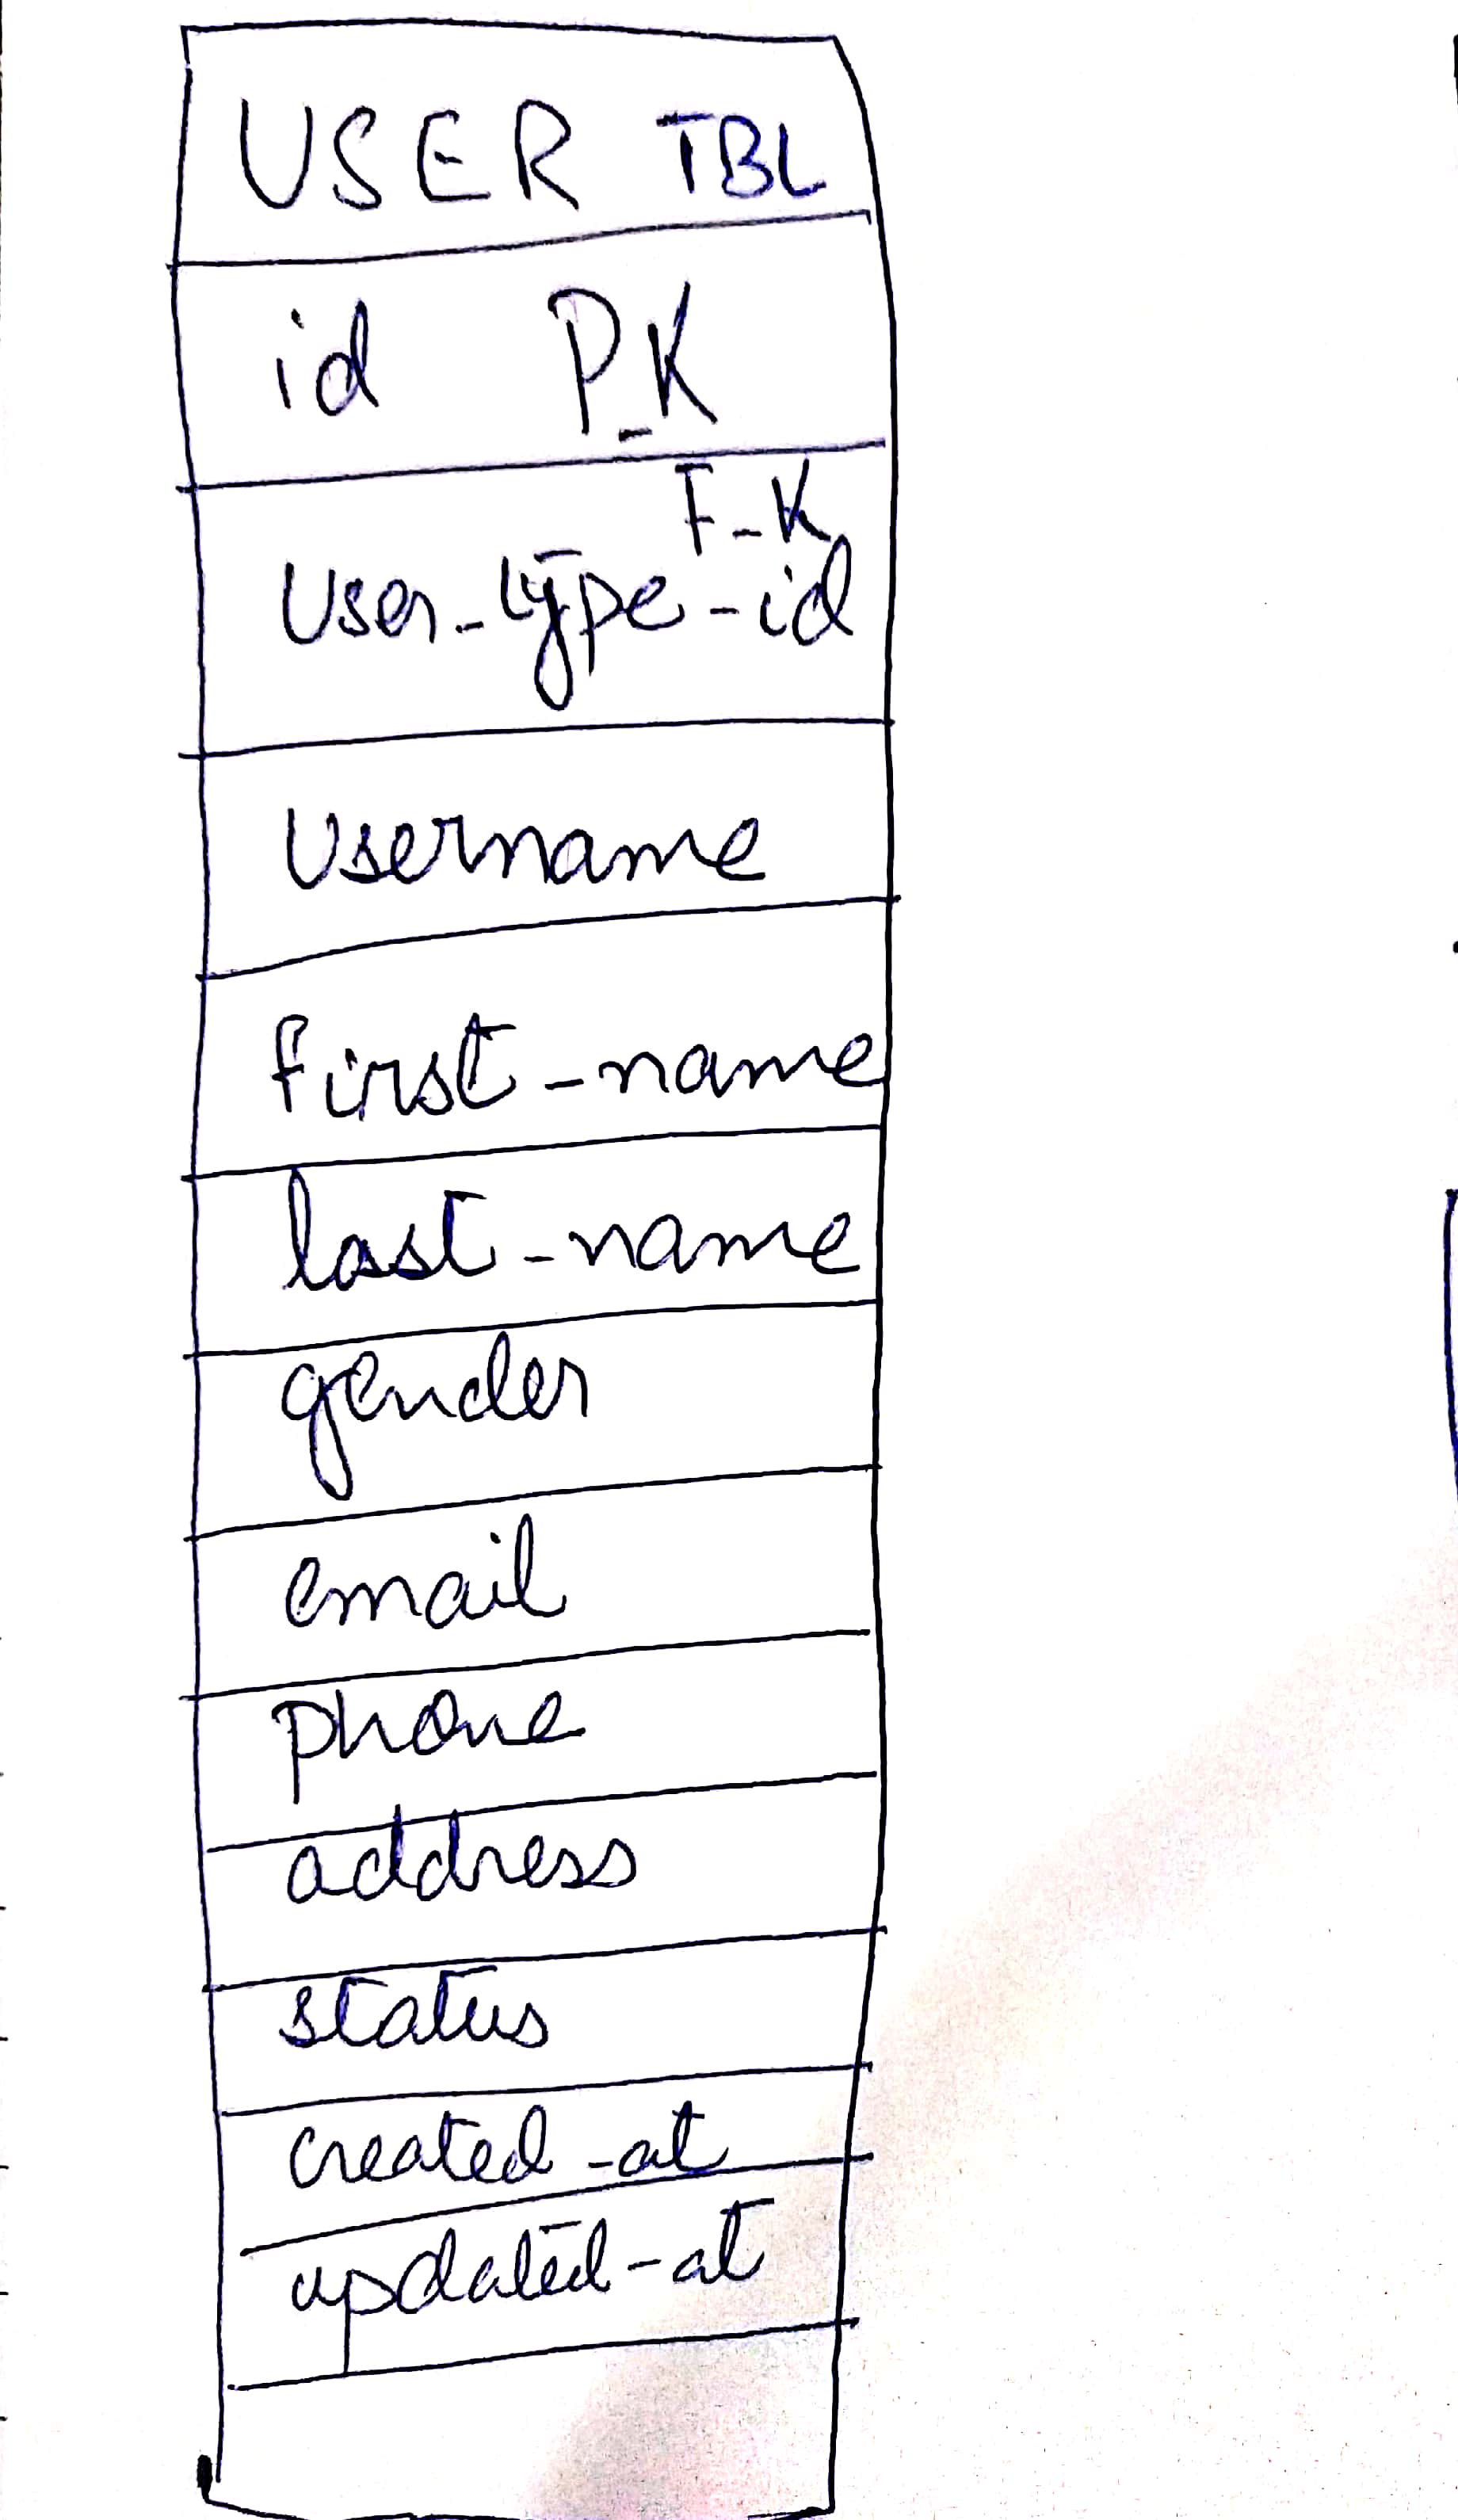 USER TBL
id P_K
F_K
User_type_id
Username
first_name
last_name
gender
email
phone
address
status
created_at
updated_at